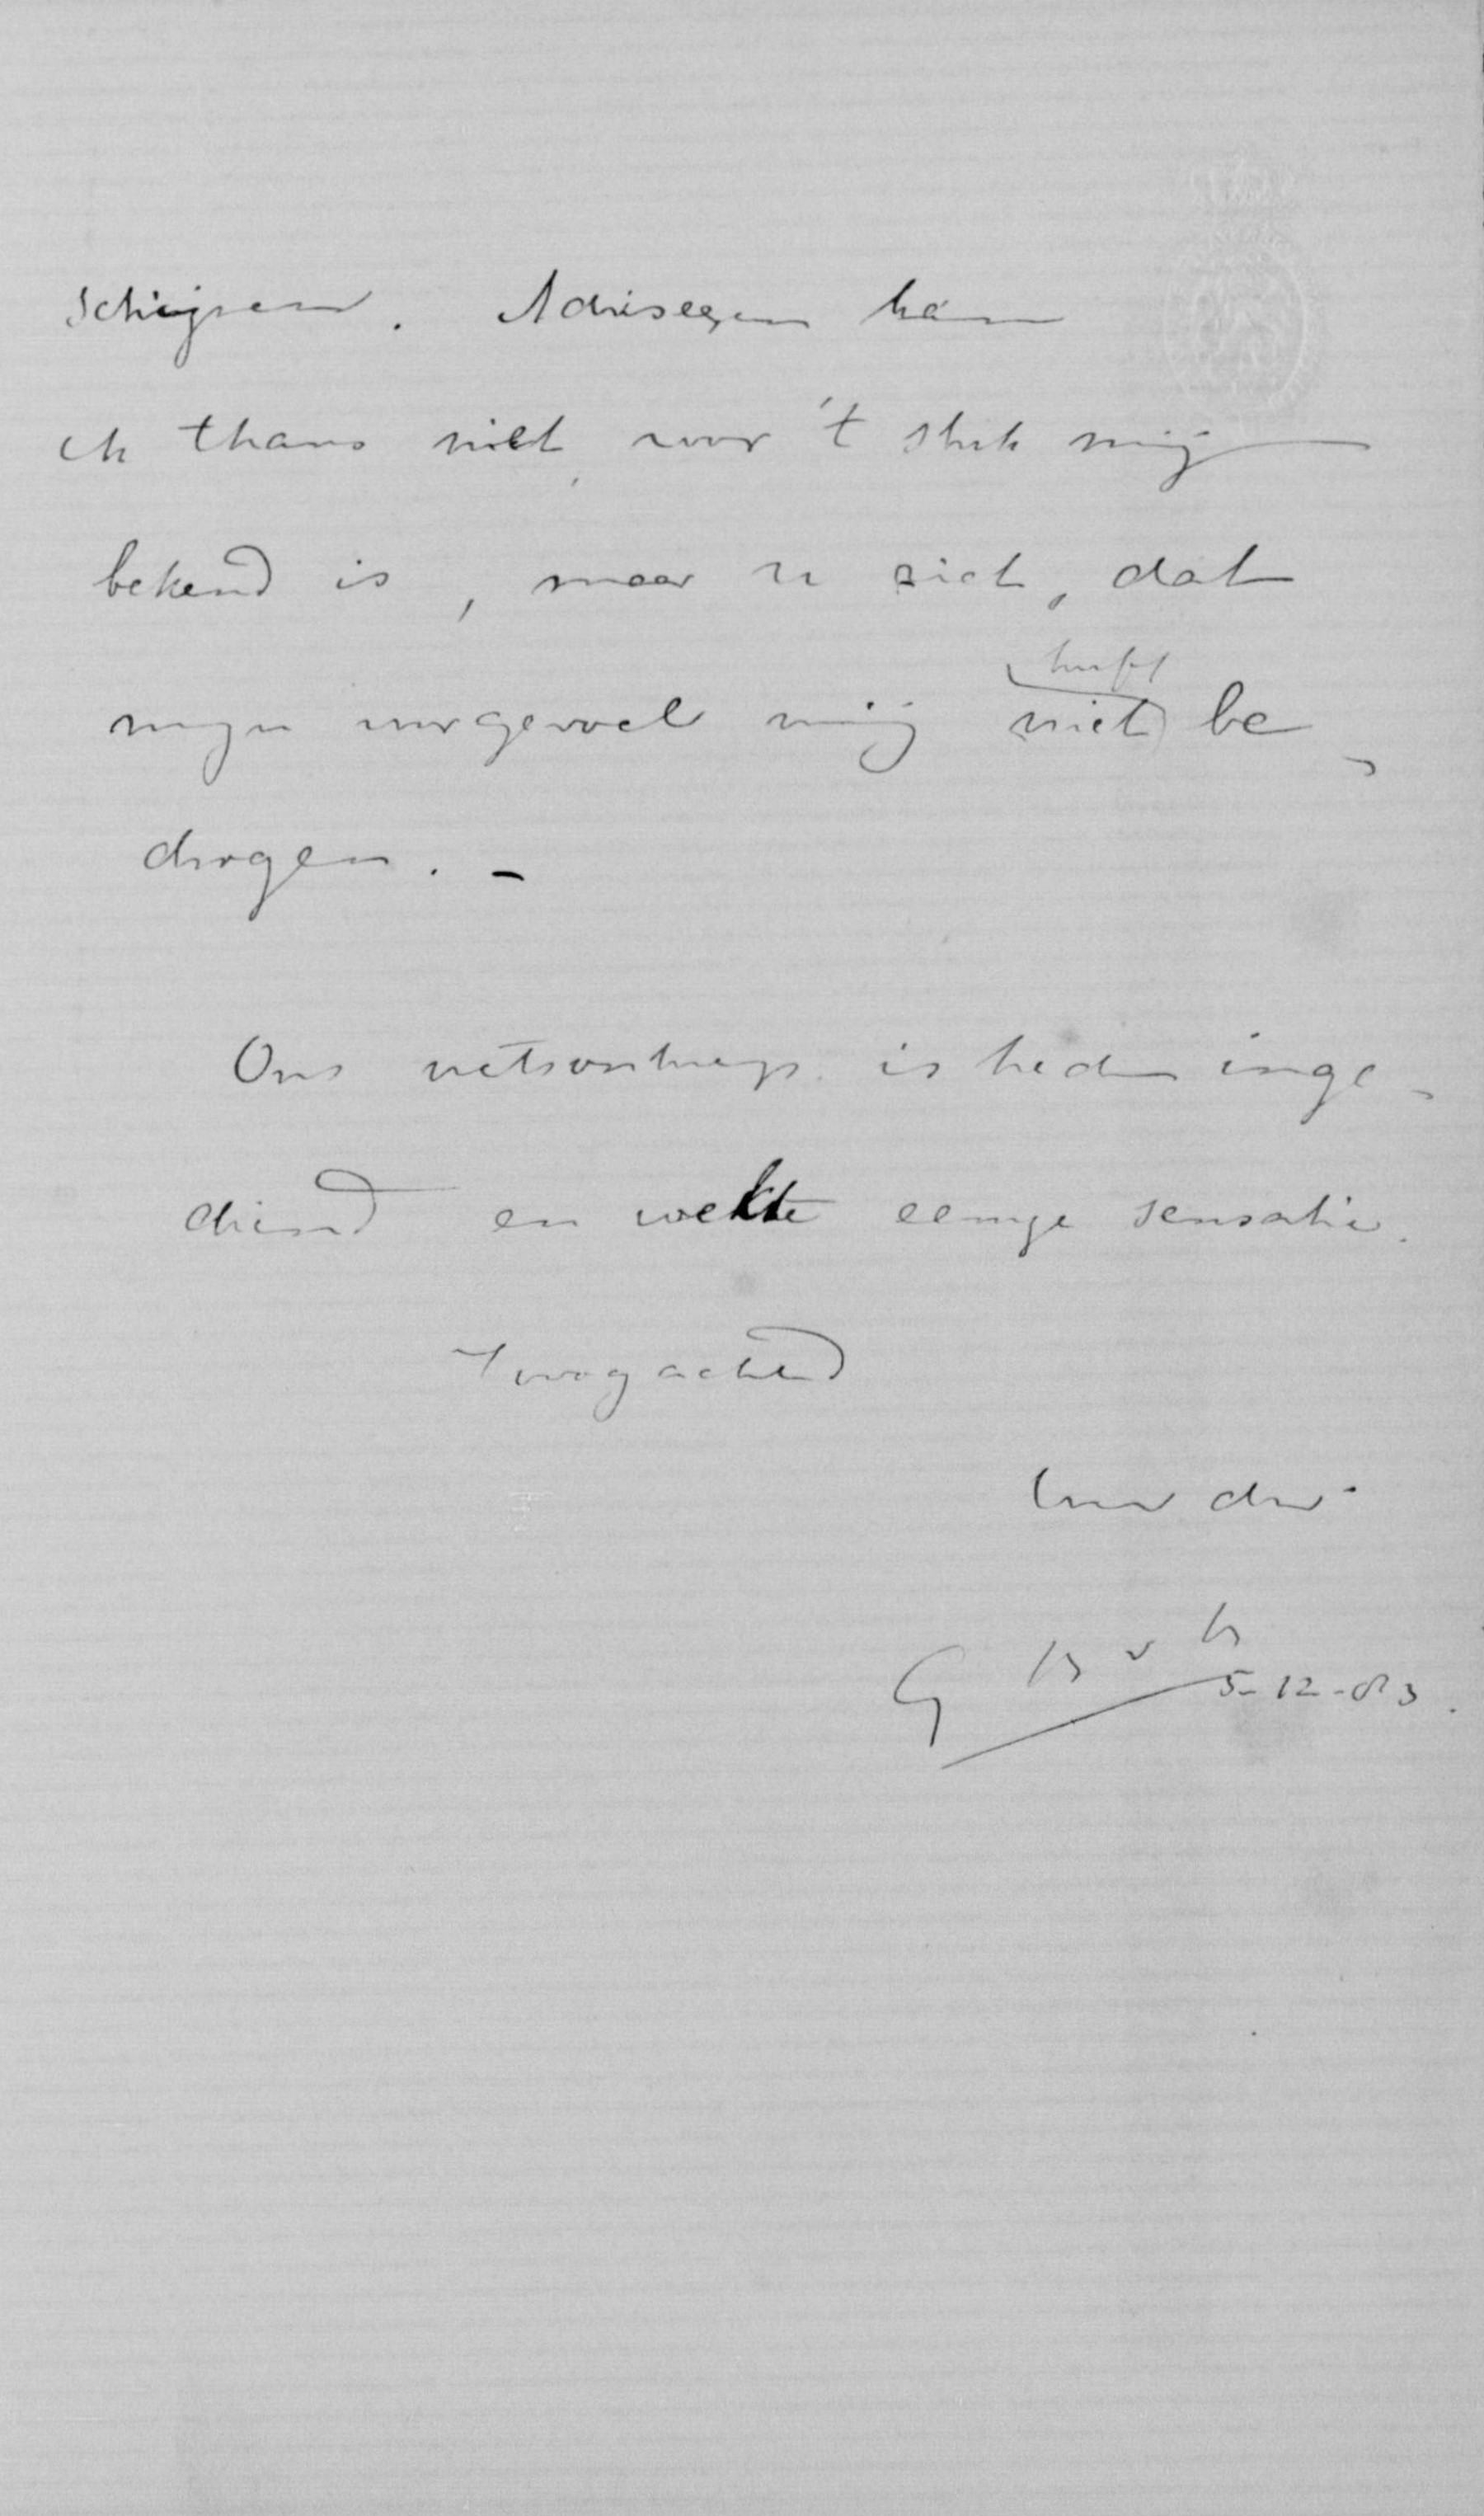 schrijven. Adviseeren kan
ik thans niet, voor 't stuk mij
bekend is, maar u ziet, dat
mijn voorgevoel mij niet heeft be-
drogen. -
Ons wetsontwerp is heden inge-
diend en wekte eenige sensatie.
Hoogachtend
Uw dw.
G B v B
5-12-83.